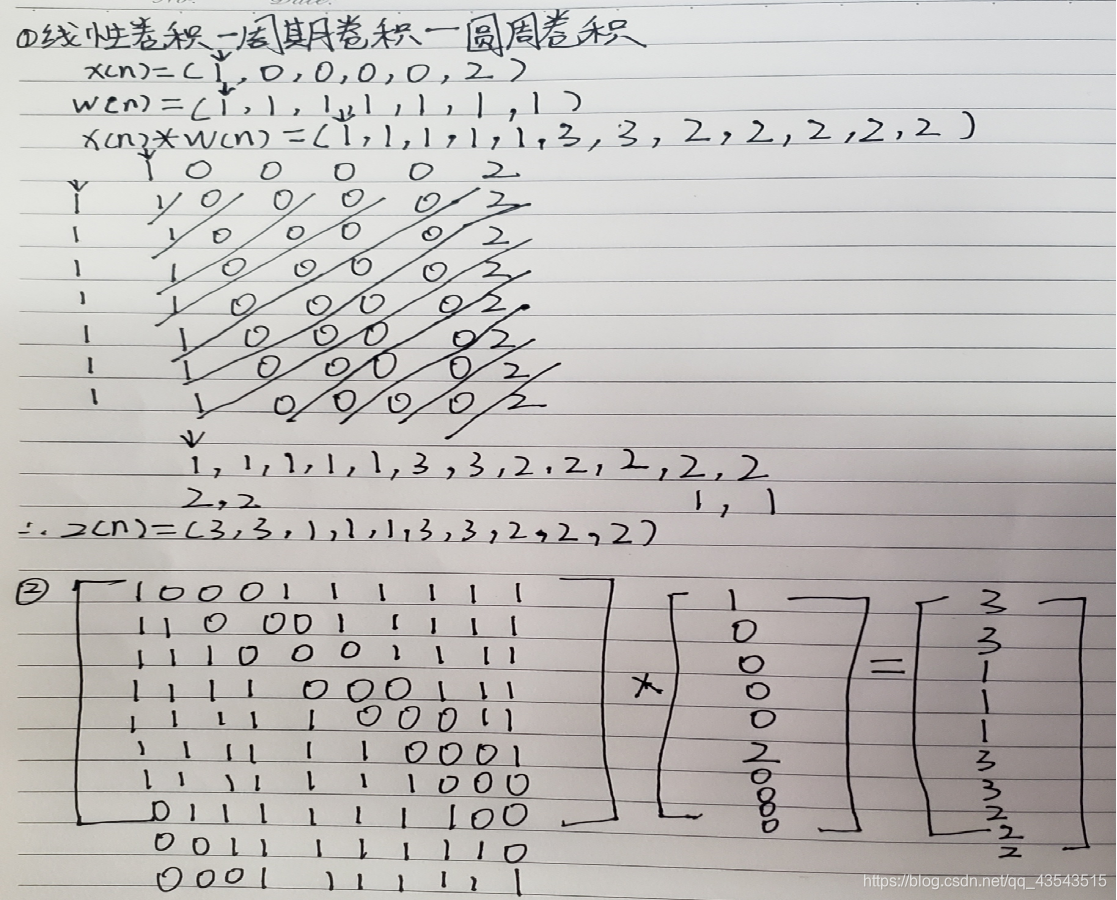 ①线性卷积—周期卷积—圆周卷积
x(n)=(1,0,0,0,0,2)
w(n)=(1,1,1,1,1,1,1)
x(n)*w(n)=(1,1,1,1,1,3,3,2,2,2,2,2)
1 0 0 0 0 2
1 1 0 0 0 0 2
1 1 0 0 0 0 2
1 1 0 0 0 0 2
1 1 0 0 0 0 2
1 1 0 0 0 0 2
1 1 0 0 0 0 2
1 1 0 0 0 0 2
1,1,1,1,1,3,3,2,2,2,2,2
2,2 1,1
∴z(n)=(3,3,1,1,1,3,3,2,2,2)
② 1 0 0 0 1 1 1 1 1 1 1 3
1 1 0 0 0 1 1 1 1 1 0 3
1 1 1 0 0 0 1 1 1 1 0 1
1 1 1 1 0 0 0 1 1 1 * 0 = 1
1 1 1 1 1 0 0 0 1 1 0 1
1 1 1 1 1 1 0 0 0 1 2 3
1 1 1 1 1 1 1 0 0 0 0 3
0 1 1 1 1 1 1 1 0 0 0 2
0 0 1 1 1 1 1 1 1 0 0 2
0 0 0 1 1 1 1 1 1 1 0 2
https://blog.csdn.net/qq_43543515